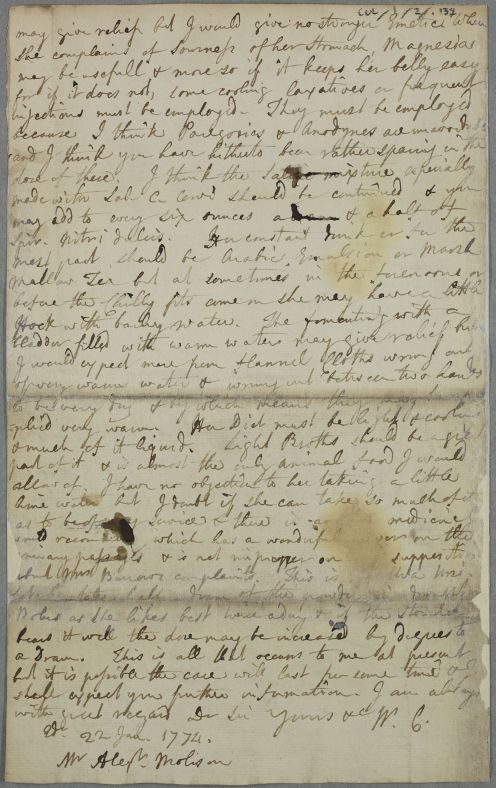 CUL/3/2/132
may give relief but I would give no stronger Emetics When
she complains of Sourness of her Stomach, Magnesia
may be usefull & more so if it keeps her belly easy
for if it does not, some cooling laxatives or frequent
injections must be employed. They must be employed
because I think Paregorics & Anodynes are unavoid
and I think you have hitherto been rather sparing in the
dose of these. I think the mixture especially
made with Sal. C. Cervi should be continued & you
may add to every six ounces a & a half of
Spir. Nitri dulcis. Her constant drink or for the
most part should be Arabic Emulsion or Marsh
Mallow Tea but at sometimes in the forenoons or
before the Chilly fits come on she may have a little
Hock with barley water. The fomenting with a
bladder filled with warm water may give relief but
I would expect more from Flannel Cloths wrung out
of very warm water & wrung out between two hands
to be very dry & by which means they may be
plied very warm. Her Diet must be light & cooling
& much of it liquid. Light Broths should be a great
part of it & is almost the only animal food I would
allow of. I have no objection to her taking a little
lime water but I doubt if she can take so much of it
as to be of any service & there is medicine I
which has a wonderful on the
urinary passages & is not improper on
complaints. This is
take half a Dram of the powder
Bolus as she likes best twice a day & if the stomach
bears it well the dose may be increased by degrees to
a Dram. This is all that occurs to me at present
but it is possible the case will last for some time & I
shall expect your further information. I am always
with great regard Dr Sir Yours &c W. C.
Edr 22 Jan. 1774.
Mr Alexr. Molison